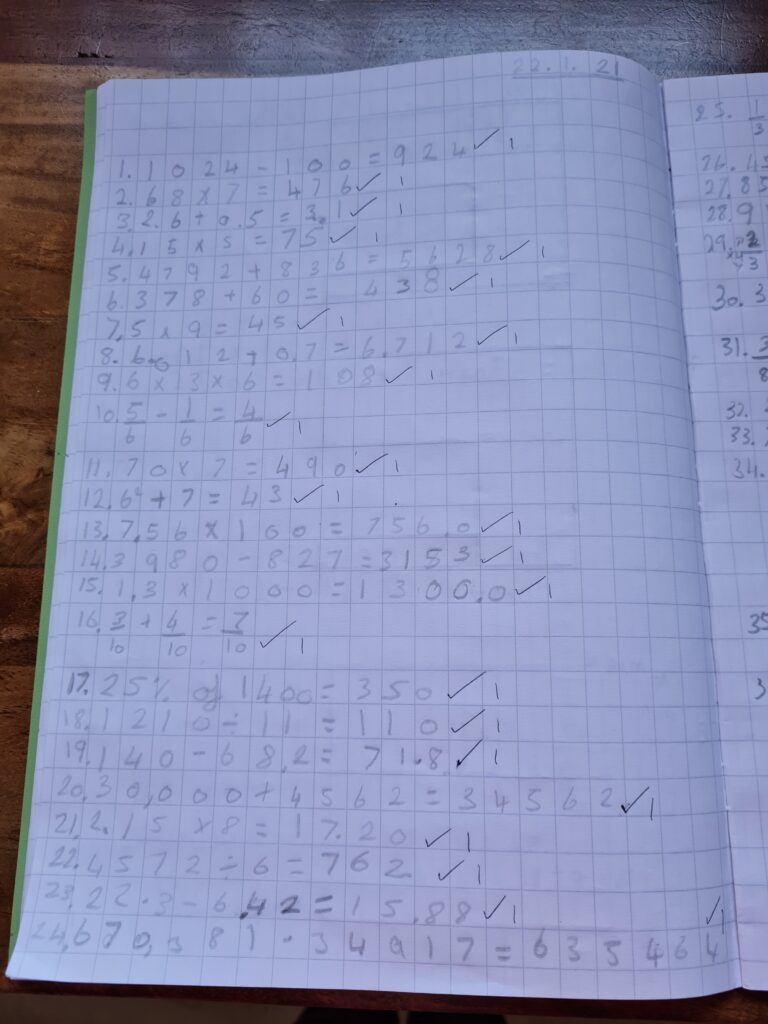 22.1.21
1. 1024 - 100 = 924 ✓ 1
2. 68 × 7 = 476 ✓ 1
3. 2.6 + 0.5 = 3.1 ✓ 1
4. 15 × 5 = 75 ✓ 1
5. 4792 + 836 = 5628 ✓ 1
6. 378 + 60 = 438 ✓ 1
7. 5 × 9 = 45 ✓ 1
8. 6.012 + 0.7 = 6.712 ✓ 1
9. 6 × 3 × 6 = 108 ✓ 1
10. 5/6 - 1/6 = 4/6 ✓ 1
11. 70 × 7 = 490 ✓ 1
12. 6² + 7 = 43 ✓ 1
13. 7.56 × 100 = 756.0 ✓ 1
14. 3980 - 827 = 3153 ✓ 1
15. 1.3 × 1000 = 1300.0 ✓ 1
16. 3/10 + 4/10 = 7/10 ✓ 1
17. 25% of 1400 = 350 ✓ 1
18. 1210 ÷ 11 = 110 ✓ 1
19. 140 - 68.2 = 71.8 ✓ 1
20. 30,000 + 4562 = 34562 ✓ 1
21. 2.15 × 8 = 17.20 ✓ 1
22. 4572 ÷ 6 = 762 ✓ 1
23. 22.3 - 6.42 = 15.88 ✓ 1
24. 670,381 - 34917 = 635464 ✓ 1
25. 1/3
26.
27. 85
28. 9
29.
30. 3
31. 3/8
32.
33.
34.
35
3